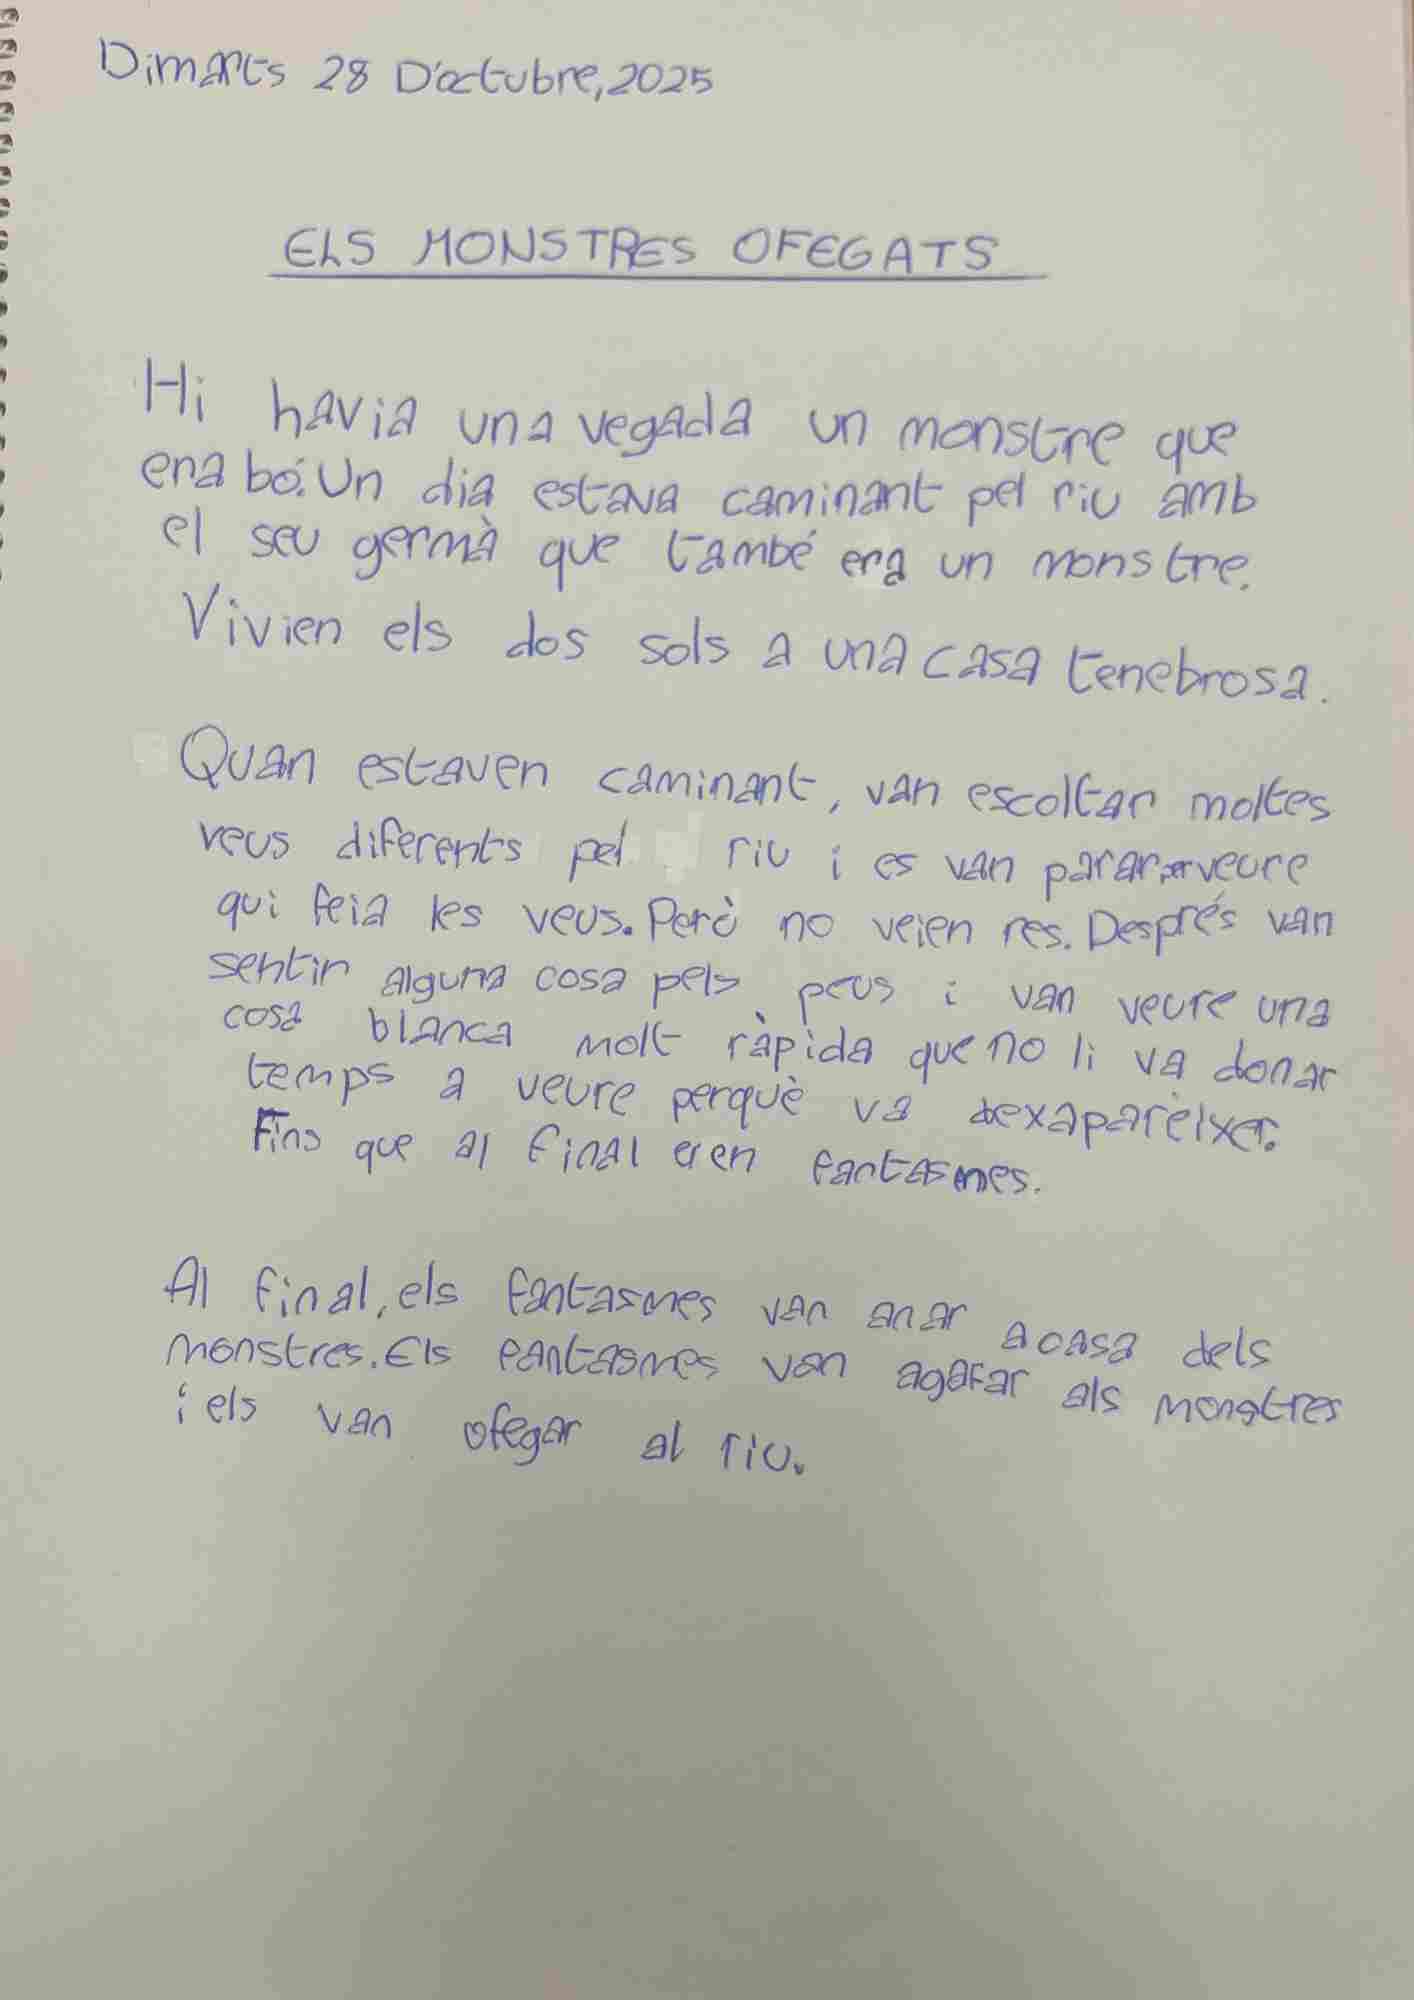 Dimarts 28 D'octubre, 2025
ELS MONSTRES OFEGATS
Hi havia una vegada un monstre que
era bó. Un dia estava caminant pel riu amb
el seu germà que també era un monstre.
Vivien els dos sols a una casa tenebrosa.
Quan estaven caminant, van escoltar moltes
veus diferents pel riu i es van parar per veure
qui feia les veus. Però no veien res. Després van
sentir alguna cosa pels peus i van veure una
cosa blanca molt ràpida que no li va donar
temps a veure perquè va dexaparèixer.
Fins que al final eren fantasmes.
Al final, els fantasmes van anar a casa dels
monstres. Els fantasmes van agafar als monstres
i els van ofegar al riu.